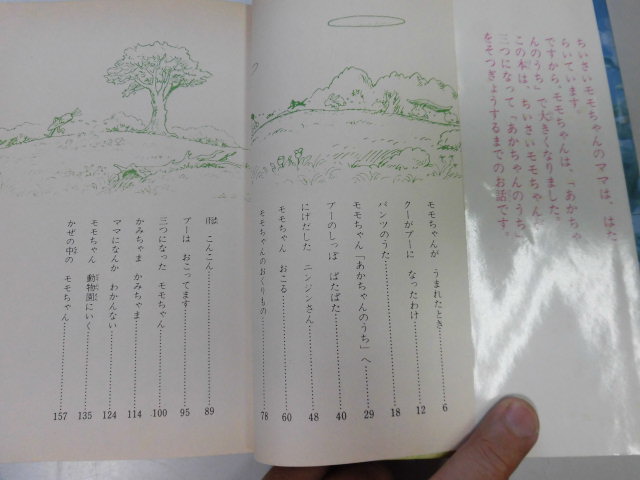 ちいさいモモちゃんのママは、はた
らいています。
ですから、モモちゃんは、「あかちゃ
んのうち」で大きくなりました。
この本は、ちいさいモモちゃんが
三つになって、「あかちゃんのうち」
をそつぎょうするまでのお話です。
モモちゃんが うまれたとき……6
クーがプーに なったわけ……12
パンツのうた……18
モモちゃん 「あかちゃんのうち」へ……29
プーのしっぽ ぱたぱたぱた……40
にげだした ニンジンさん……48
モモちゃん おこる……60
モモちゃんのおくりもの……78
雨 こんこん……89
プーは おこってます……95
三つになった モモちゃん……100
かみちゃま かみちゃま……114
ママになんか わかんない……124
モモちゃん 動物園にいく……135
かぜの中の モモちゃん……157